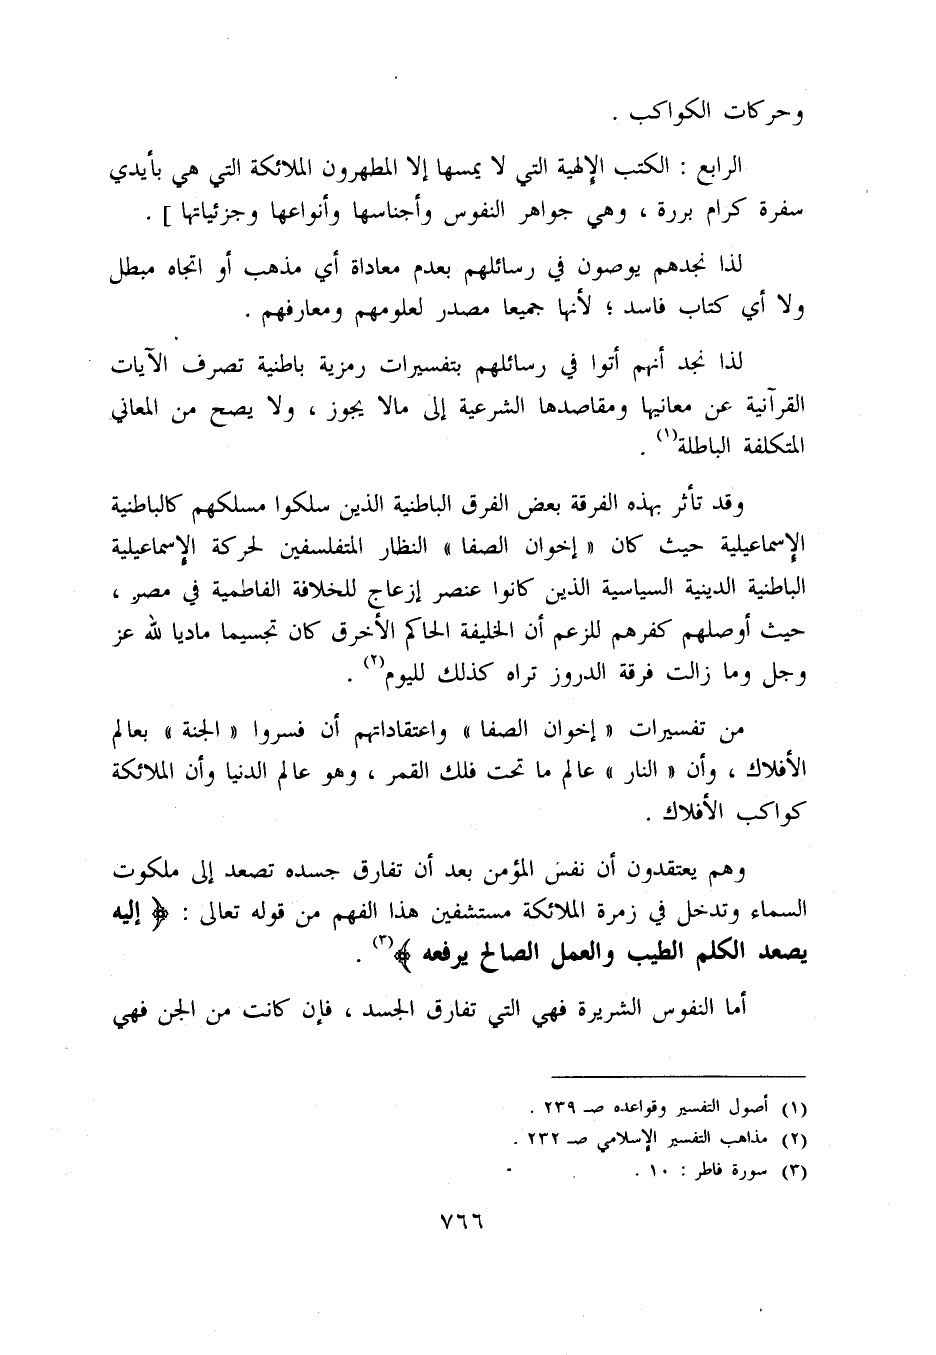 وحركات الكواكب .
الرابع : الكتب الإلهية التي لا يمسها إلا المطهرون الملائكة التي هي بأيدي
سفرة كرام بررة ، وهي جواهر النفوس وأجناسها وأنواعها وجزئياتها ] .
لذا نجدهم يوصون في رسائلهم بعدم معاداة أي مذهب أو اتجاه مبطل
ولا أي كتاب فاسد ؛ لأنها جميعا مصدر لعلومهم ومعارفهم .
لذا نجد أنهم أتوا في رسائلهم بتفسيرات رمزية باطنية تصرف الآيات
القرآنية عن معانيها ومقاصدها الشرعية إلى مالا يجوز ، ولا يصح من المعاني
المتكلفة الباطلة(١) .
وقد تأثر بهذه الفرقة بعض الفرق الباطنية الذين سلكوا مسلكهم كالباطنية
الإسماعيلية حيث كان « إخوان الصفا » النظار المتفلسفين لحركة الإسماعيلية
الباطنية الدينية السياسية الذين كانوا عنصر إزعاج للخلافة الفاطمية في مصر ،
حيث أوصلهم كفرهم للزعم أن الخليفة الحاكم الأخرق كان تجسيما ماديا لله عز
وجل وما زالت فرقة الدروز تراه كذلك لليوم(٢) .
من تفسيرات « إخوان الصفا » واعتقاداتهم أن فسروا « الجنة » بعالم
الأفلاك ، وأن « النار » عالم ما تحت فلك القمر ، وهو عالم الدنيا وأن الملائكة
كواكب الأفلاك .
وهم يعتقدون أن نفس المؤمن بعد أن تفارق جسده تصعد إلى ملكوت
السماء وتدخل في زمرة الملائكة مستشفين هذا الفهم من قوله تعالى : ﴿ إليه
يصعد الكلم الطيب والعمل الصالح يرفعه ﴾(٣) .
أما النفوس الشريرة فهي التي تفارق الجسد ، فإن كانت من الجن فهي
(١) أصول التفسير وقواعده صـ ٢٣٩ .
(٢) مذاهب التفسير الإسلامي صـ ٢٣٢ .
(٣) سورة فاطر : ١٠ .
٧٦٦